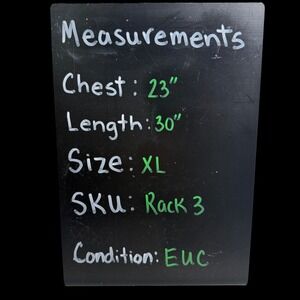 Measurements
Chest: 23"
Length: 30"
Size: XL
SKU: Rack 3
Condition: EUC